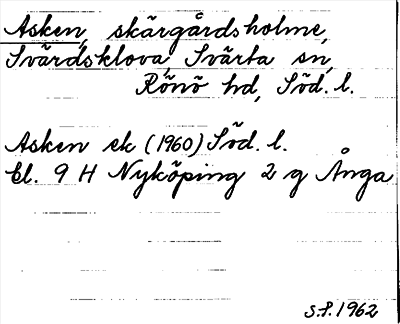 Asken, skärgårdsholme,
Svärdsklova, Svärta sn,
Rönö hd, Söd. l.
Asken ek (1960) Söd. l.
Bl. 9 H Nyköping 2 g Ånga
S.P. 1962